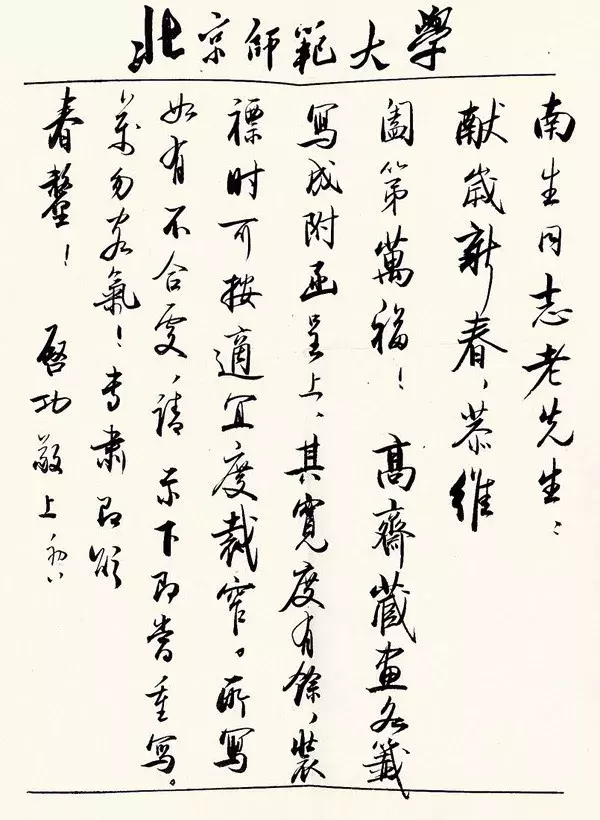 北京师範大學
南生同志老先生：
献歲新春，恭維
阖第萬福！ 高齋藏畫各籤
寫成附函呈上，其寬度有餘，裝
褾时可按適宜度裁窄。所寫
如有不合處，請示下即當重寫。
萬勿客氣！专肅即頌
春釐！ 启功敬上 初八